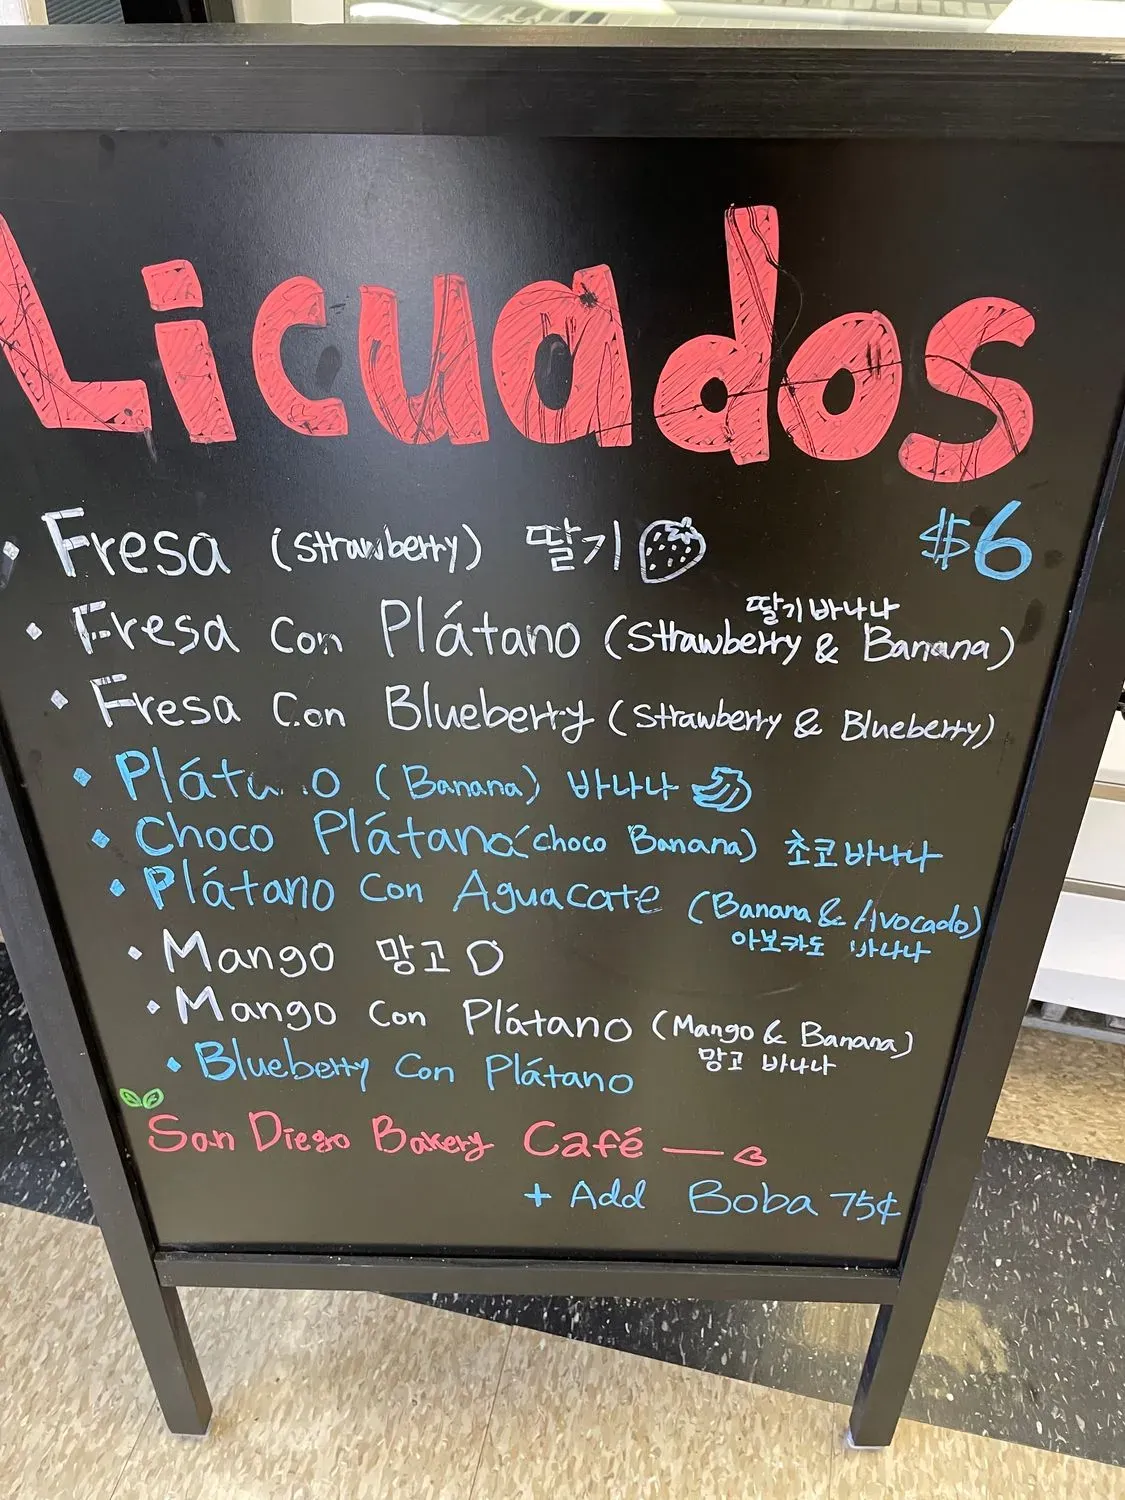 Licuados
Fresa (Strawberry) 딸기 $6
딸기바나나
Fresa Con Plátano (Strawberry & Banana)
Fresa Con Blueberry (Strawberry & Blueberry)
Plátano (Banana) 바나나
Choco Plátano (choco Banana) 초코바나나
Plátano Con Aguacate (Banana & Avocado)
아보카도 바나나
Mango 망고
Mango Con Plátano (Mango & Banana)
망고 바나나
Blueberry Con Plátano
San Diego Bakery Café
+ Add Boba 75¢